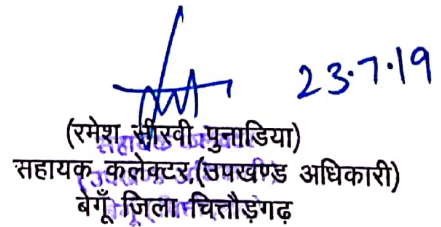 23.7.19
(रमेश सीरवी पुनाडिया)
सहायक कलेक्टर,(उपखण्ड अधिकारी)
बेगूँ ज़िला चित्तौड़गढ़